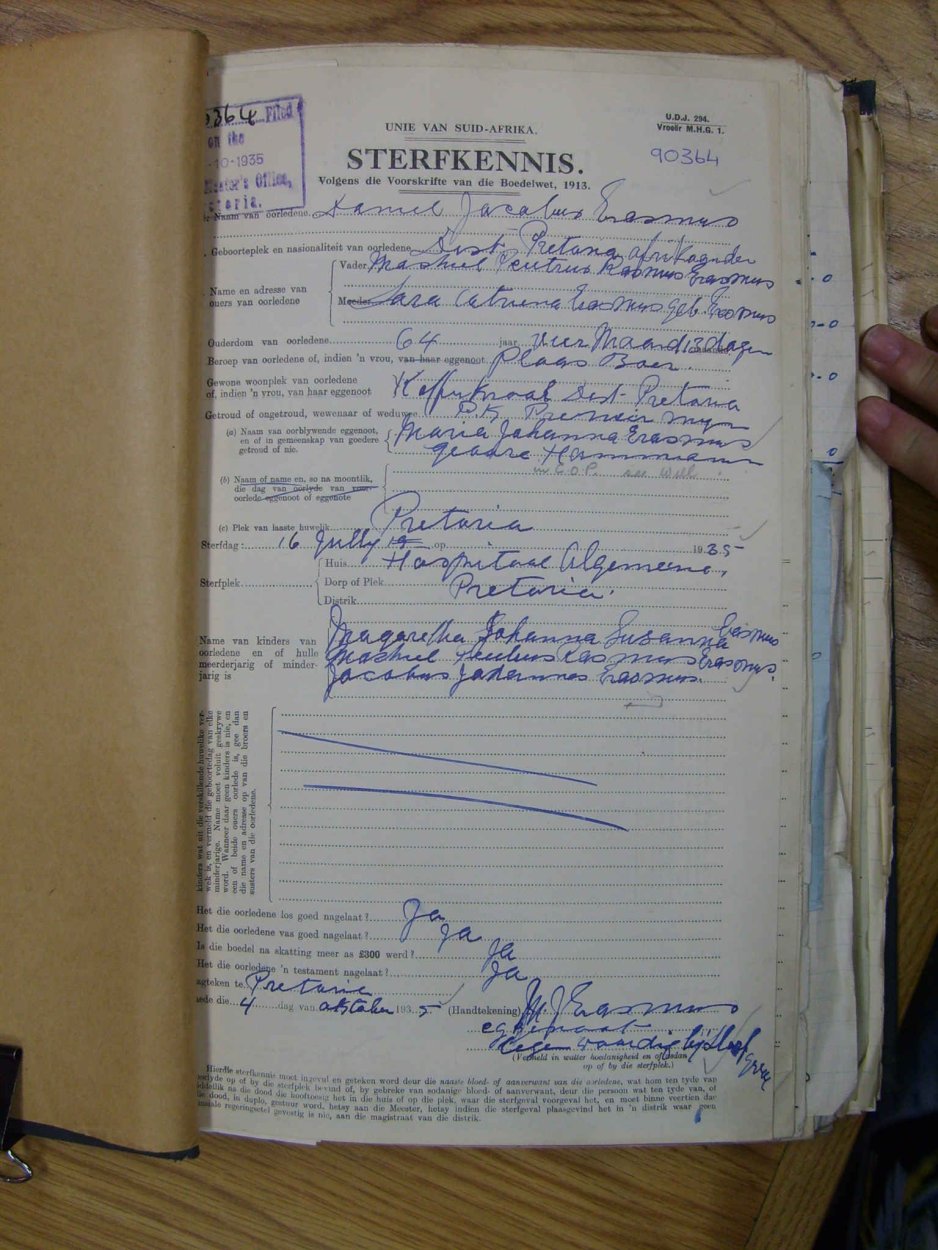 364 Filed
on the
-10-1935
Master's Office,
Pretoria.
UNIE VAN SUID-AFRIKA.
U.D.J. 294.
Vroeër M.H.G. 1.
90364
STERFKENNIS.
Volgens die Voorskrifte van die Boedelwet, 1913.
Naam van oorledene Daniel Jacobus Erasmus
Geboorteplek en nasionaliteit van oorledene Dist. Pretoria afrikaander
Name en adresse van ouers van oorledene
Vader Mashiel Petrus Rasmus Erasmus
Moeder Sara Catriena Erasmus geb. Erasmus
Ouderdom van oorledene 64 jaar vier Maand 13 dagen maande
Beroep van oorledene of, indien 'n vrou, van haar eggenoot Plaas Boer.
Gewone woonplek van oorledene
of, indien 'n vrou, van haar eggenoot Dist. Pretoria
Getroud of ongetroud, wewenaar of weduwee P.K. Premier Myn
(a) Naam van oorblywende eggenoot,
en of in gemeenskap van goedere
getroud of nie.
Maria Johanna Erasmus
gebore Hammann
in C.O.P. see Will
(b) Naam of name en, so na moontlik,
die dag van oorlyde van voor-
oorlede eggenoot of eggenote
(c) Plek van laaste huwelik Pretoria
Sterfdag: 16 Jully 19 op 1935
Sterfplek
Huis Hospitaal Algemeene,
Dorp of Plek Pretoria.
Distrik
Name van kinders van
oorledene en of hulle
meerderjarig of minder-
jarig is
Magaretha Johanna Susanna Erasmus
Mashiel Rasmus Erasmus.
Jacobus Johannes Erasmus.
kinders wat uit die verskillende huwelike ver-
wek is, en vermeld die geboortedag van elke
minderjarige. Name moet voluit geskrywe
word. Wanneer daar geen kinders is nie, en
een of beide ouers oorlede is, gee dan
die name en adresse op van die broers en
susters van die oorledene.
Het die oorledene los goed nagelaat? Ja
Het die oorledene vas goed nagelaat? Ja
Is die boedel na skatting meer as £300 werd? Ja
Het die oorledene 'n testament nagelaat? Ja
Pretoria
4 dag van oktober 1935 (Handtekening) M J Erasmus
eggenoot
teenwoordig by
(Vermeld in watter hoedanigheid en of aldan
op of by die sterfplek.)
Hierdie sterfkennis moet ingevul en geteken word deur die naaste bloed- of aanverwant van die oorledene, wat hom ten tyde van
oorlyde op of by die sterfplek bevind of, by gebreke van sodanige bloed- of aanverwant, deur die persoon wat ten tyde van, of
dadelik na die dood die hooftoesig het in die huis of op die plek, waar die sterfgeval voorgeval het, en moet binne veertien dae
die dood, in duplo, gestuur word, hetsy aan die Meester, hetsy indien die sterfgeval plaasgevind het in 'n distrik waar geen
regeringsetel gevestig is nie, aan die magistraat van die distrik.